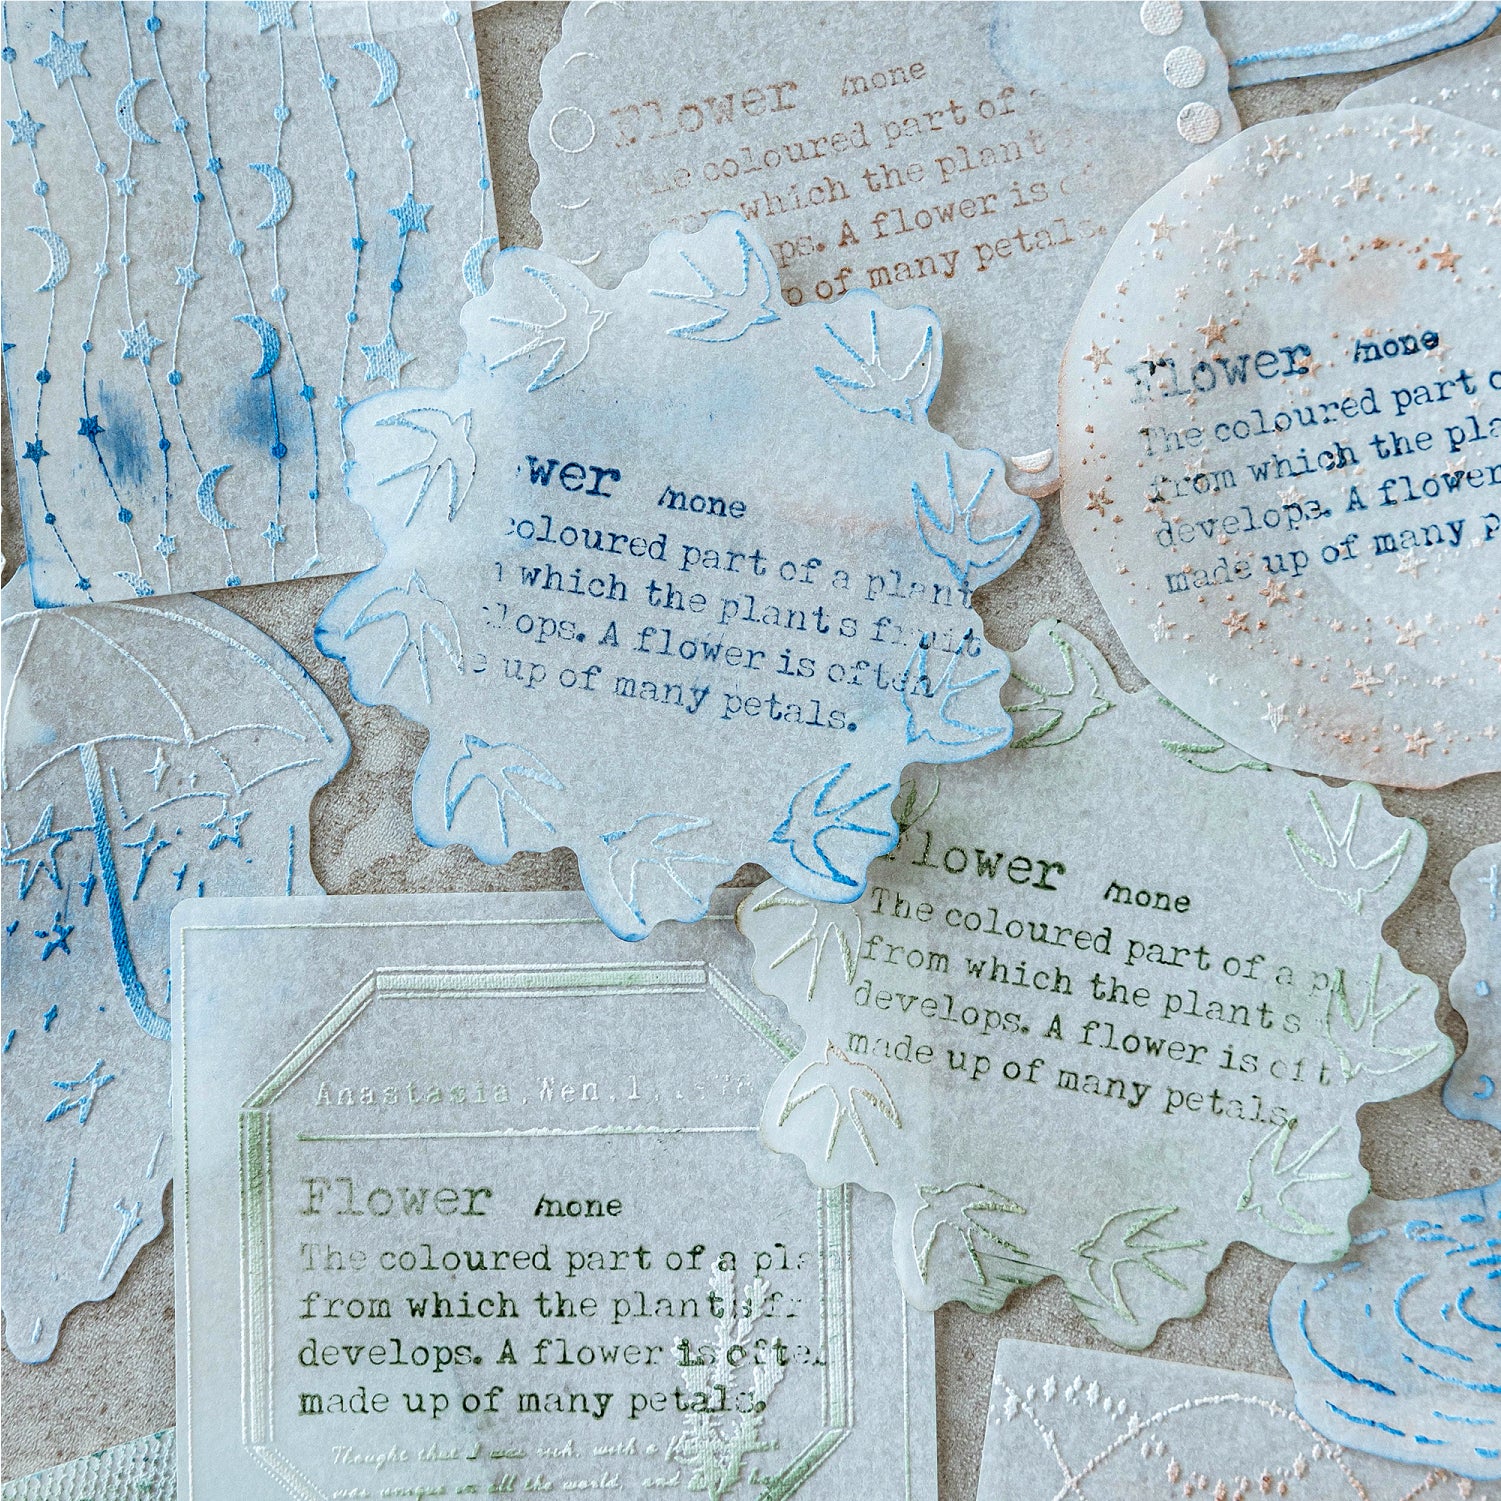 Flower /none
The coloured part of a
which the plant
ps. A flower is
p of many petals.
Flower /none
The coloured part
from which the pla
develops. A flower
made up of many p
wer /none
coloured part of a plant
which the plants fruit
lops. A flower is often
e up of many petals.
Flower /none
The coloured part of a pl
from which the plants
develops. A flower is oft
made up of many petals.
Anastasia,Wen,1,
Flower /none
The coloured part of a plan
from which the plants fr
develops. A flower is often
made up of many petals.
Thought that I was rich, with a fl
was unique in all the world, and